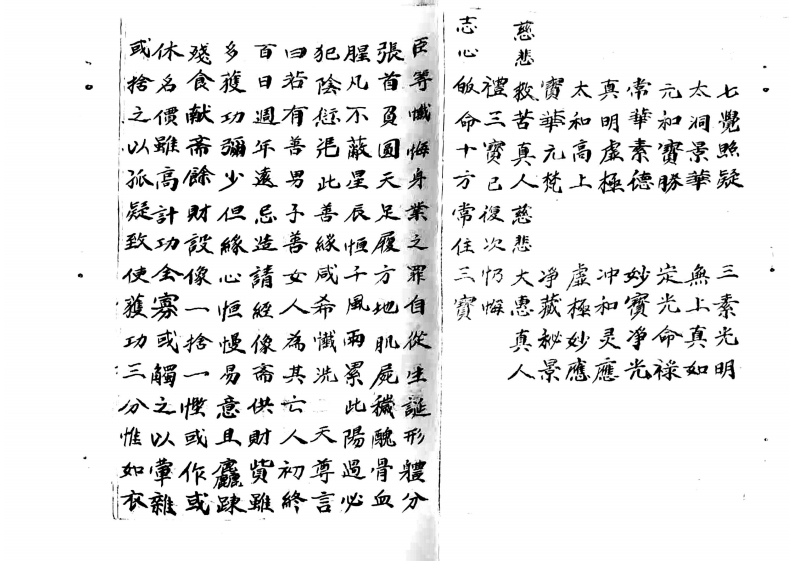 七覺照疑　三素光明
太洞景華　無上真如
元和寶勝　定光命祿
常華素德　妙寶淨光
真明虛極　冲和灵應
太和高上　虛極妙應
寶華元梵　淨藏秘景
慈悲救苦真人慈悲大惠真人
禮三寶已復次懺悔
志心皈命十方常住三寶
臣等懺悔身業之罪自從生誕形軆分
張首負圓天足履方地肌屍穢醜骨血
腥凡不蔽星辰恒干風雨累此陽過必
犯陰愆　此善緣咸希懺洗　天尊言
曰若有善男子善女人為其亡人初終
百日週年遠忌造請經像斋供財貲雖
多獲功彌少但緣心恒慢易意且麤踈
殘食献斋餘財設像一捨一慳或作或
休名價雖高計功全寡或觸之以葷雜
或捨之以孤疑致使獲功三分惟如衣